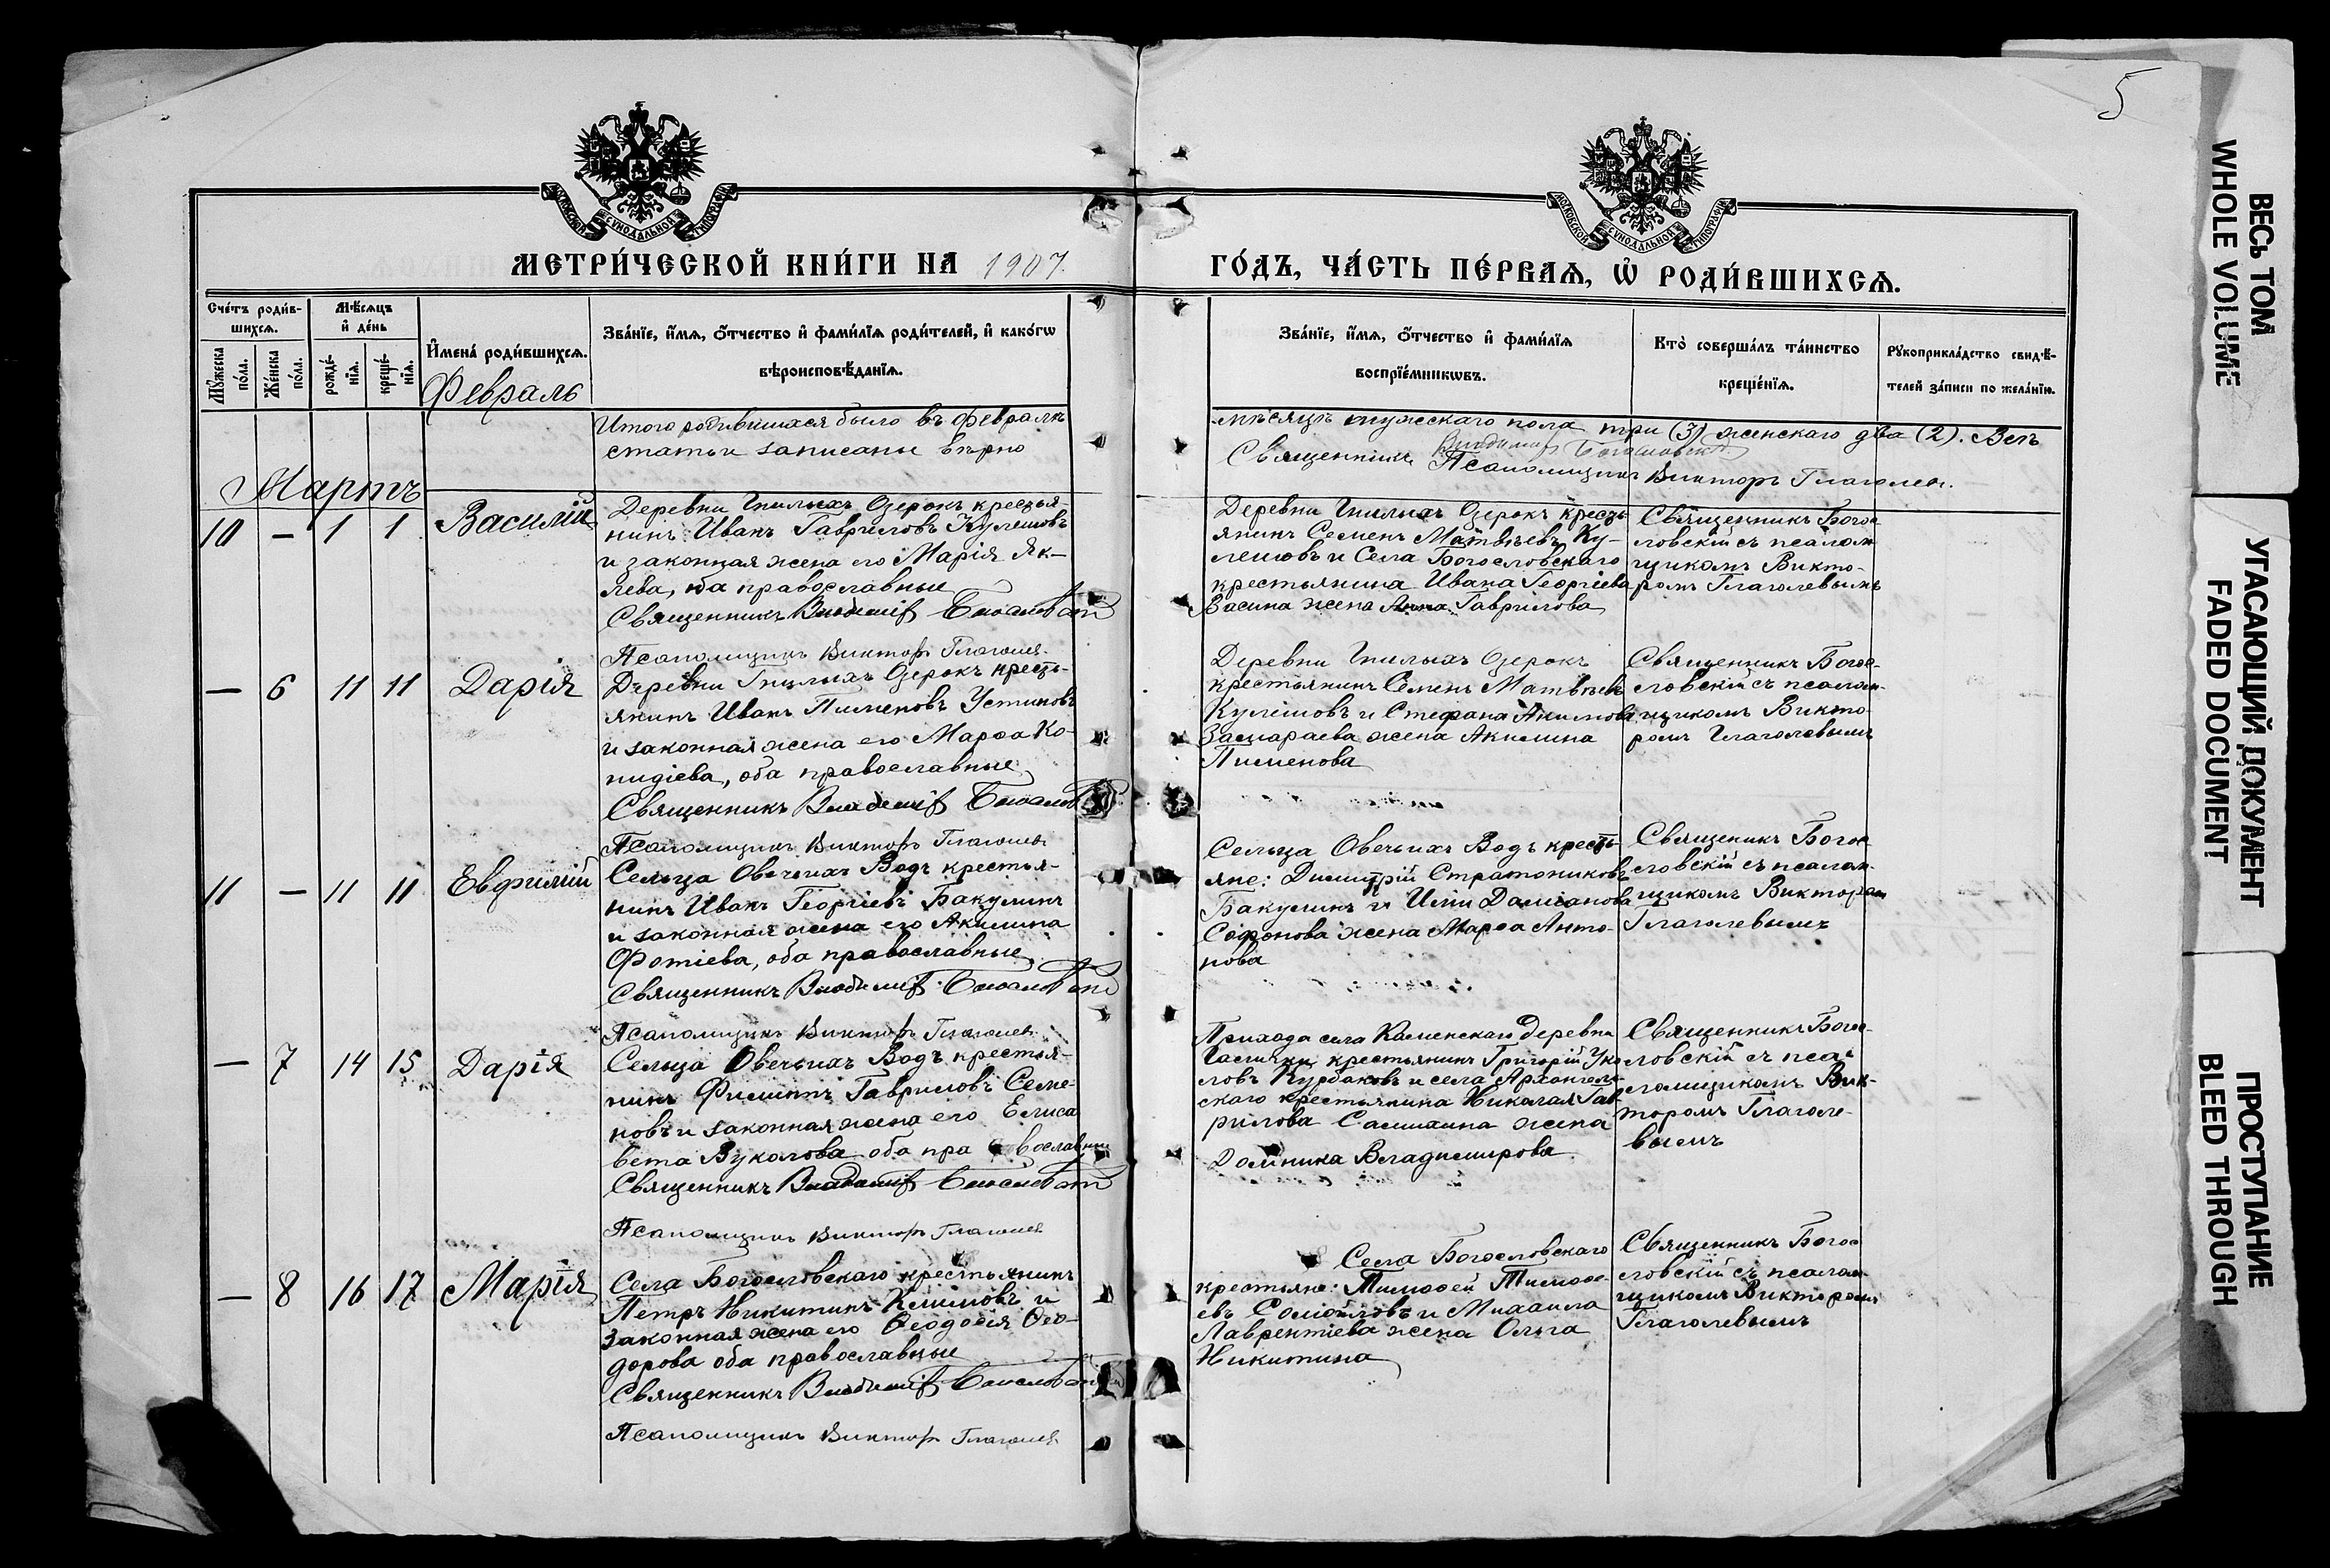 5
МОСКОВСКОЙ СѴНОДАЛЬНОЙ ТИПОГРАФІИ
МОСКОВСКОЙ СѴНОДАЛЬНОЙ ТИПОГРАФІИ
МЕТРИ́ЧЕСКОЙ КНИ́ГИ НА 1907.
ГО́ДЪ, ЧА́СТЬ ПЕ́РВАѦ, Ѡ҆ РОДИ́ВШИХСѦ.
Сче́тъ роди́в-
шихсѧ.
Мꙋ́жеска
по́ла.
Же́нска
по́ла.
Мѣ́сѧцъ
и҆ де́нь
рожде́-
нїѧ.
креще́-
нїѧ.
И҆мена̀ роди́вшихсѧ.
Февраль
Зва́нїе, и҆́мѧ, ѻ҆́тчество и҆ фами́лїѧ роди́телей, и҆ како́гѡ
вѣроисповѣ́данїѧ.
Зва́нїе, и҆́мѧ, ѻ҆́тчество и҆ фами́лїѧ
воспрїе́мникѡвъ.
Кто̀ соверша́лъ та́инство
креще́нїѧ.
Рꙋкоприкла́дство свидѣ́-
телей за́писи по жела́нїю.
Итого родившихся было въ февралѣ
статьи записаны вѣрно
мѣсяцѣ мужскаго пола три (3) женскаго два (2). Всѣ
Священникъ Владимиръ Богословскій
Псаломщикъ Викторъ Глаголев.
Мартъ
10 — 1 1 Василій
Деревни Гнилыхъ Озерокъ крестья-
нинъ Иванъ Гавриловъ Кулешовъ
и законная жена его Марія Як-
лева, оба православные
Священникъ Владимір Богословскій
Псаломщикъ Викторъ Глаголев
Деревни Гнилыхъ Озерокъ кресть-
янинъ Семенъ Матвѣевъ Ку-
лешовъ и Села Богословскаго
крестьянина Ивана Георгіева
Васина жена Анна Гаврилова
Священникъ Богос-
ловскій съ псалом-
щикомъ Викто-
ромъ Глаголевымъ
— 6 11 11 Дарія
Деревни Гнилыхъ Озерокъ кресть-
янинъ Иванъ Пименовъ Устиновъ
и законная жена его Марѳа Ко-
нидіева, оба православные
Священникъ Владимір Богословскій
Псаломщикъ Викторъ Глаголев
Деревни Гнилыхъ Озерокъ
крестьянинъ Семенъ Матвѣевъ
Кулешовъ и Стефана Акимова
жена Акилина
Пименова
Священникъ Богос-
ловскій съ псалом-
щикомъ Викто-
ромъ Глаголевымъ
11 — 11 11 Евфимій
Сельца Овечьихъ Водъ крестья-
нинъ Иванъ Георгіевъ Бакулинъ
и законная жена его Акилина
Фотіева, оба православные
Священникъ Владимір Богословскій
Псаломщикъ Викторъ Глаголев
Сельца Овечьихъ Водъ кресть-
яне: Димитрій Стратониковъ
Бакулинъ и Иліи Даміанова
Софонова жена Марѳа Анто-
нова
Священикъ Богос-
ловскій съ псалом-
щикомъ Викторомъ
Глаголевымъ
— 7 14 15 Дарія
Сельца Овечьихъ Водъ крестья-
нинъ Филиппъ Гавриловъ Семе-
новъ и законная жена его Елиса
вета Вуколова оба пра вославные
Священникъ Владимір Богословскій
Псаломщикъ Викторъ Глаголев
Прихода села Каменскаго деревни
крестьянинъ Григорій
ловъ Курбаковъ и села Архангель-
скаго крестьянина Николая Гав-
рилова жена
Домника Владимирова
Священникъ Богос-
ловскій съ пса-
ломщикомъ Вик-
торомъ Глаголе-
вымъ
— 8 16 17 Марія
Села Богословскаго крестьянинъ
Петръ Никитинъ Климовъ и
законная жена его Ѳеодосія Ѳео-
дорова оба православные
Священникъ Владимір Богословскій
Псаломщикъ Викторъ Глаголев
Села Богословскаго
крестьяне: Тимоѳей Тимоѳе-
евъ и Михаила
Лаврентіева жена Ольга
Никитина
Священникъ Богос
ловскій съ псалом-
щикомъ Викторомъ
Глаголевымъ
ВЕСЬ ТОМ
WHOLE VOLUME
УГАСАЮЩИЙ ДОКУМЕНТ
FADED DOCUMENT
ПРОСТУПАНИЕ
BLEED THROUGH